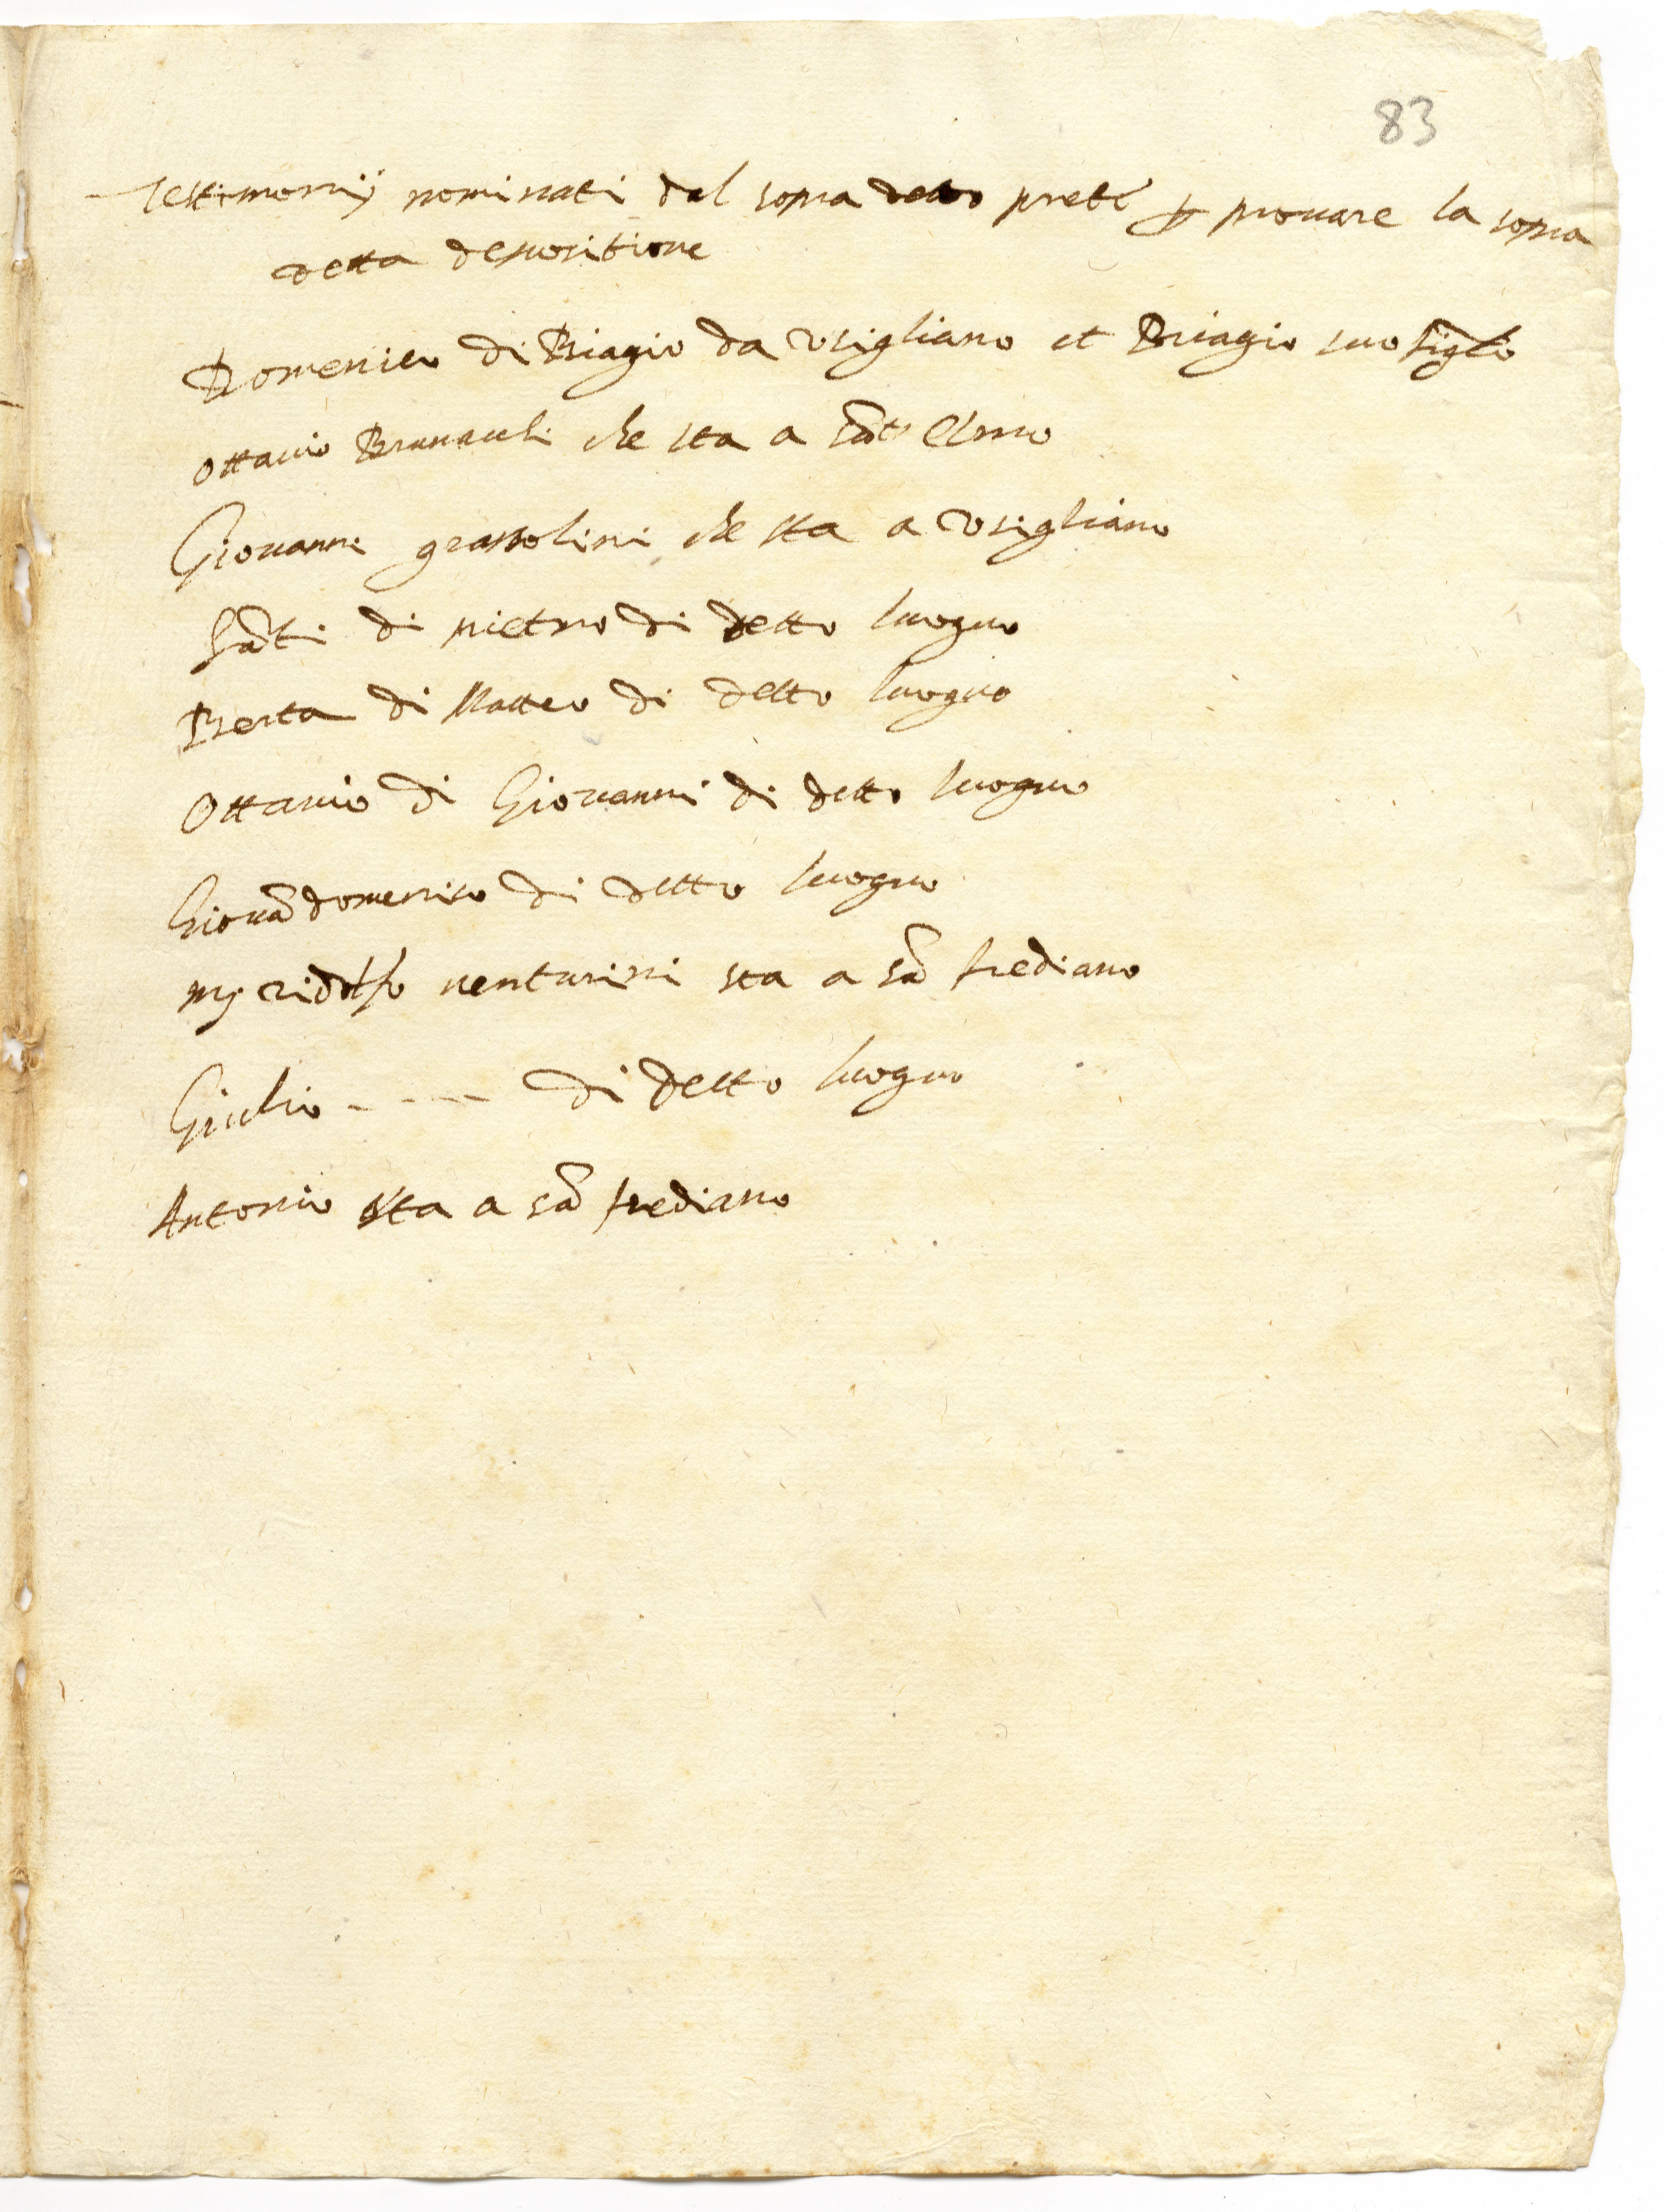 83
Testimonij nominati dal sopra detto prete p prouare la sopra
detta depositione
Domenico di Biagio da Usigliano et Biagio suo figlo
Ottauio che sta a sāt Elmo
Giouanni grassolini che sta a Usigliano
Sāti di pietro di detto luoguo
Berta di Matteo di detto luoguo
Ottauio di Giouanni di detto luoguo
Giouā domenico di detto luoguo
mʒ ridolfo uenturini sta a sā frediano
Giulio - - - - di detto luoguo
Antonio sta a sā frediano